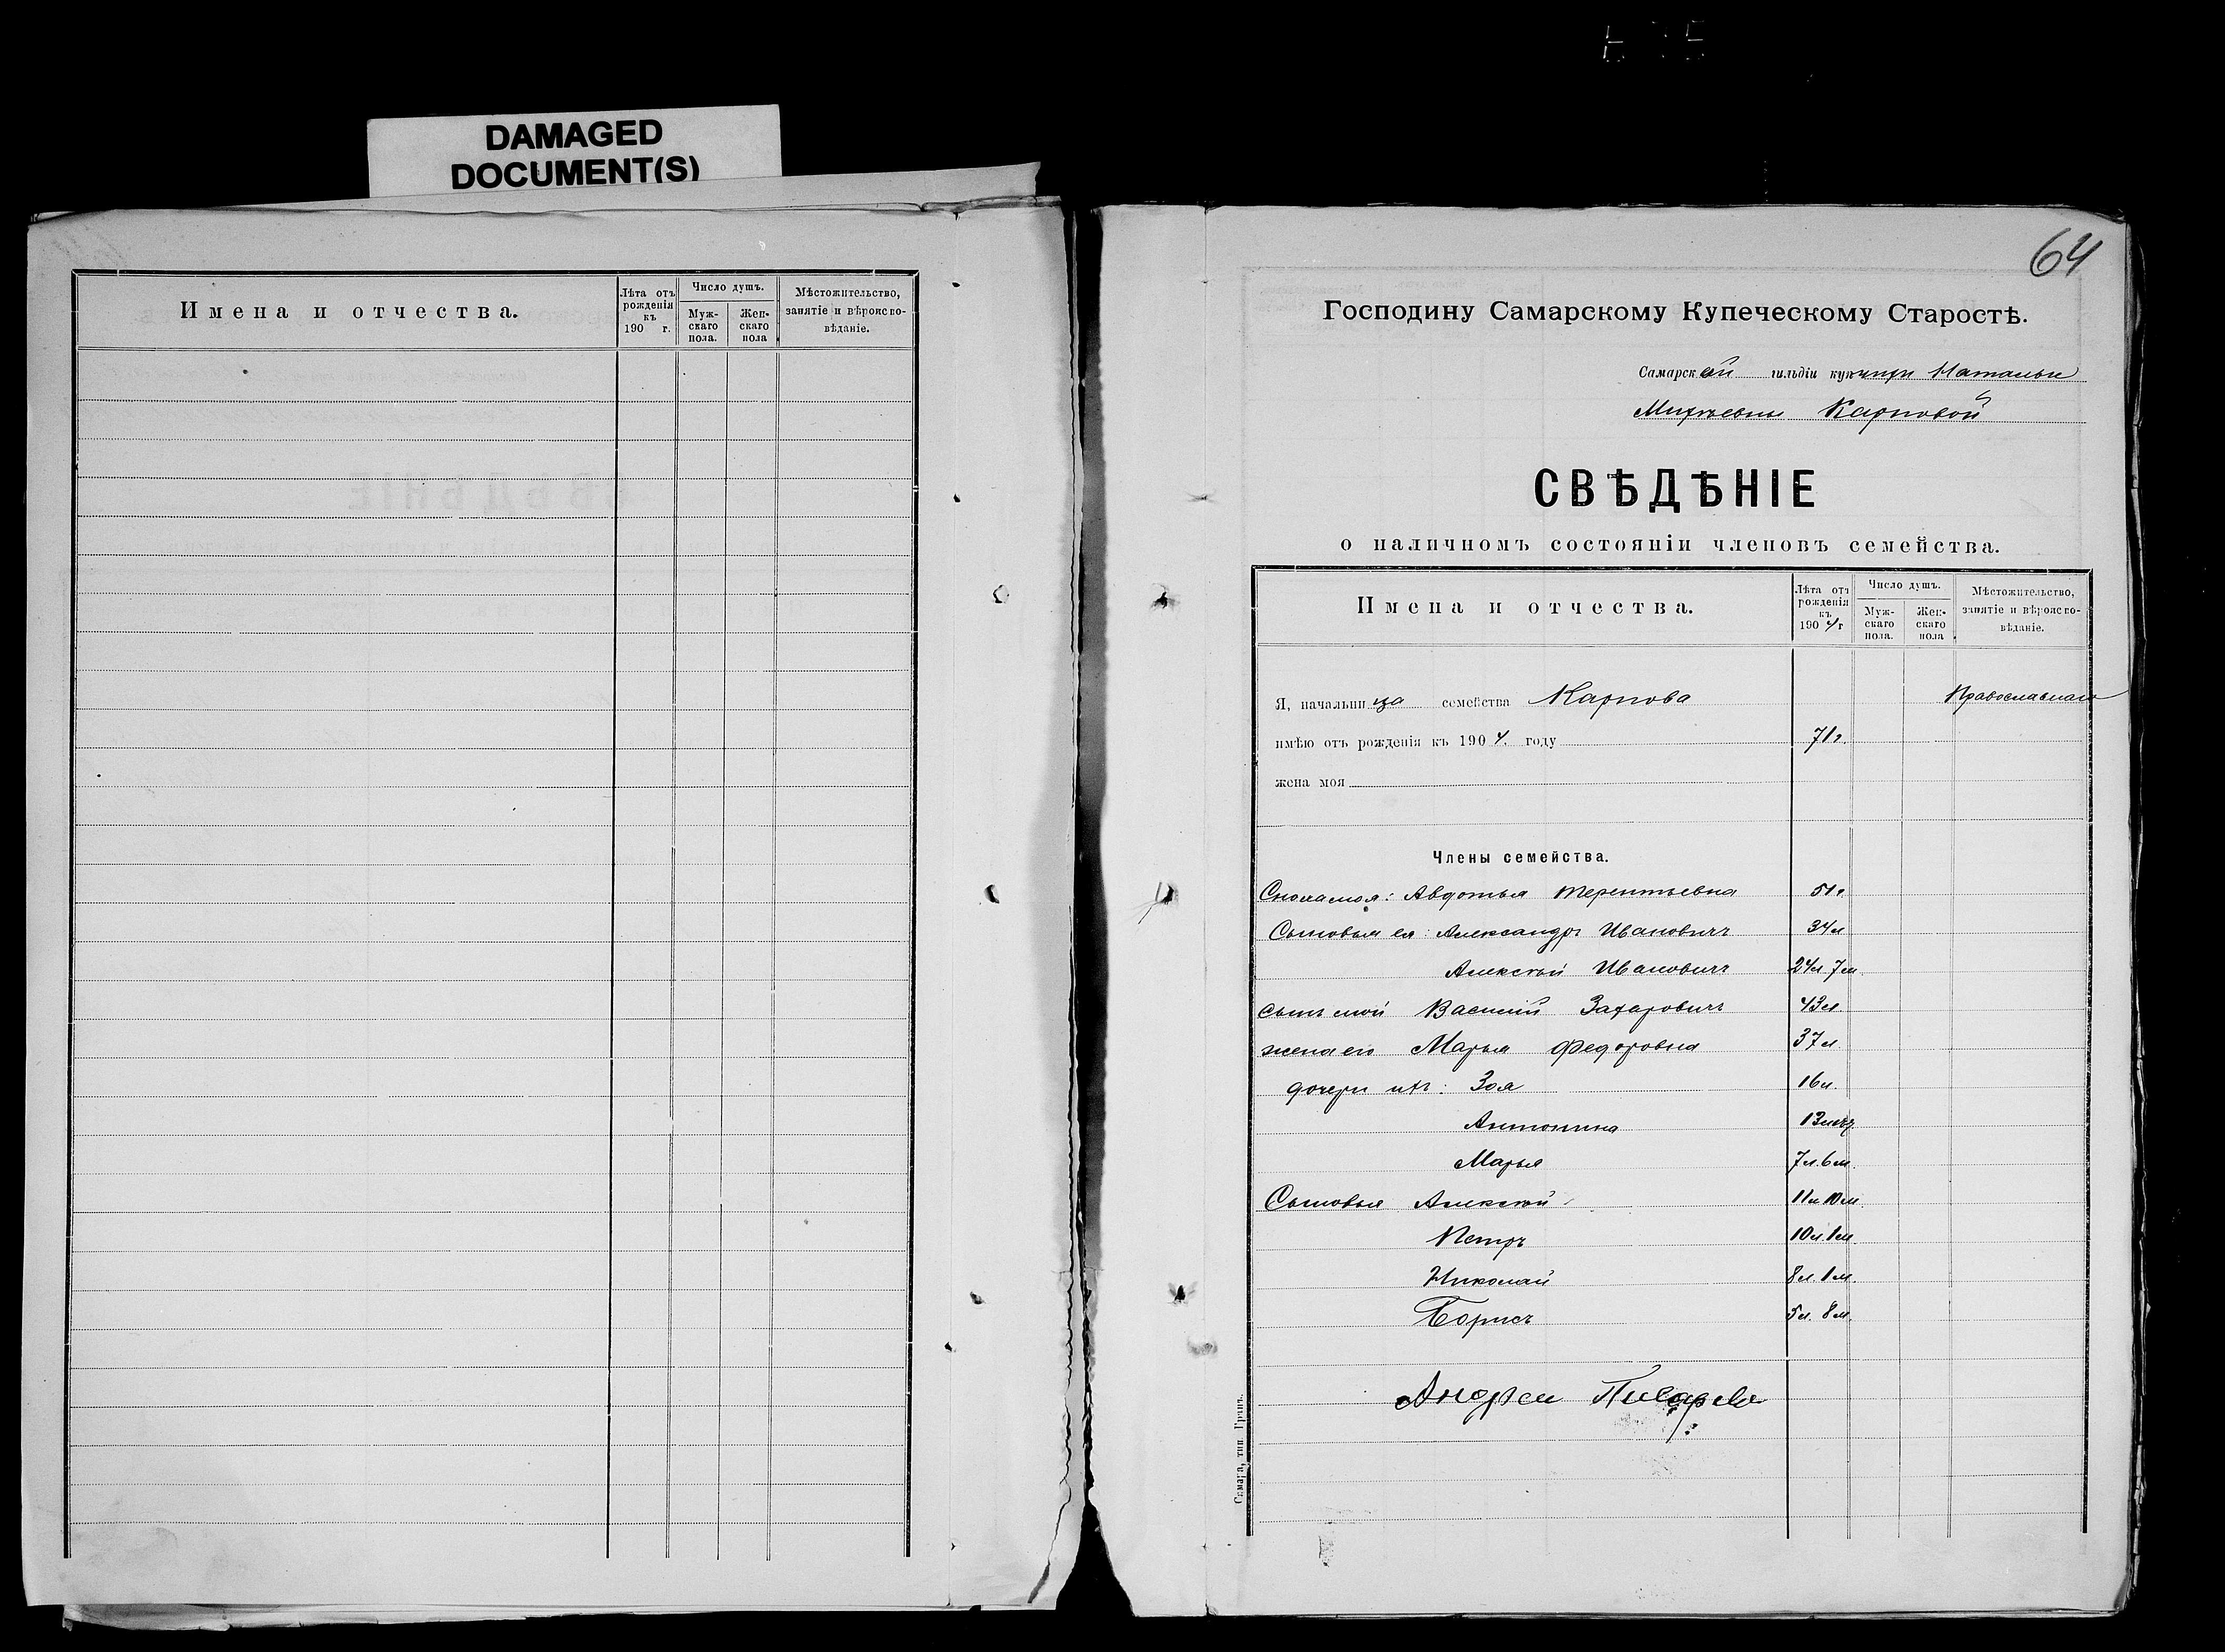 DAMAGED
DOCUMENT(S)
Имена и отчества.
Лѣта отъ рожденія къ 190 г.
Число душъ.
Мужскаго пола.
Женскаго пола
Мѣстожительство, занятіе и вѣроисповѣданіе.
64
Господину Самарскому Купеческому Старостѣ.
Самарской гильдіи купчихи Натальи
Карповой
СВѢДѢНІЕ
о наличномъ состояніи членовъ семейства.
Имена и отчества.
Лѣта отъ рожденія къ 1904 г
Число душъ.
Мужскаго пола.
Женскаго пола
Мѣстожительство, занятіе и вѣроисповѣданіе.
Я, начальница семейства Карпова Православная
имѣю отъ рожденія къ 1904. году 71 г.
жена моя
Члены семейства.
Сноха моя: Авдотья Терентьевна 51 г.
Сыновья ея: Александръ Ивановичъ 34 л
Алексѣй Ивановичъ 24 л. 7 м.
сынъ мой Василій Захаровичъ 43 л.
жена его Марья Федоровна 37 л.
дочери ихъ: Зоя 16 л.
Антонина 13
Марья 7 л. 6 м.
Сыновья Алексѣй 11 л 10 м.
Петръ 10 л. 1 м.
Николай 8 л. 1 м.
Борисъ 5 л. 8 м.
Андрей
Самара, тип. Гранъ.